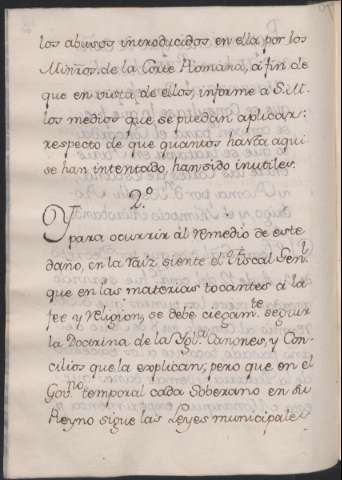 los abusos introducidos en ella por los
Miñros. de la Corte Romana, a fin de
que en vista de ellos, informe a S.M.
los medios que se puedan aplicar:
respecto de que quantos hasta aqui
se han intentado, han sido inutiles.
2.º
Y para ocurrir al remedio de este
daño, en la raíz siente el Fiscal Gen.l
que en las materias tocantes a la
fee y Religion, se debe ciegam.te seguir
la Doctrina de la Ygl.a Canones, y Con-
cilios que la explican; pero que en el
Gov.no temporal cada Soberano en su
Reyno sigue las Leyes municipales